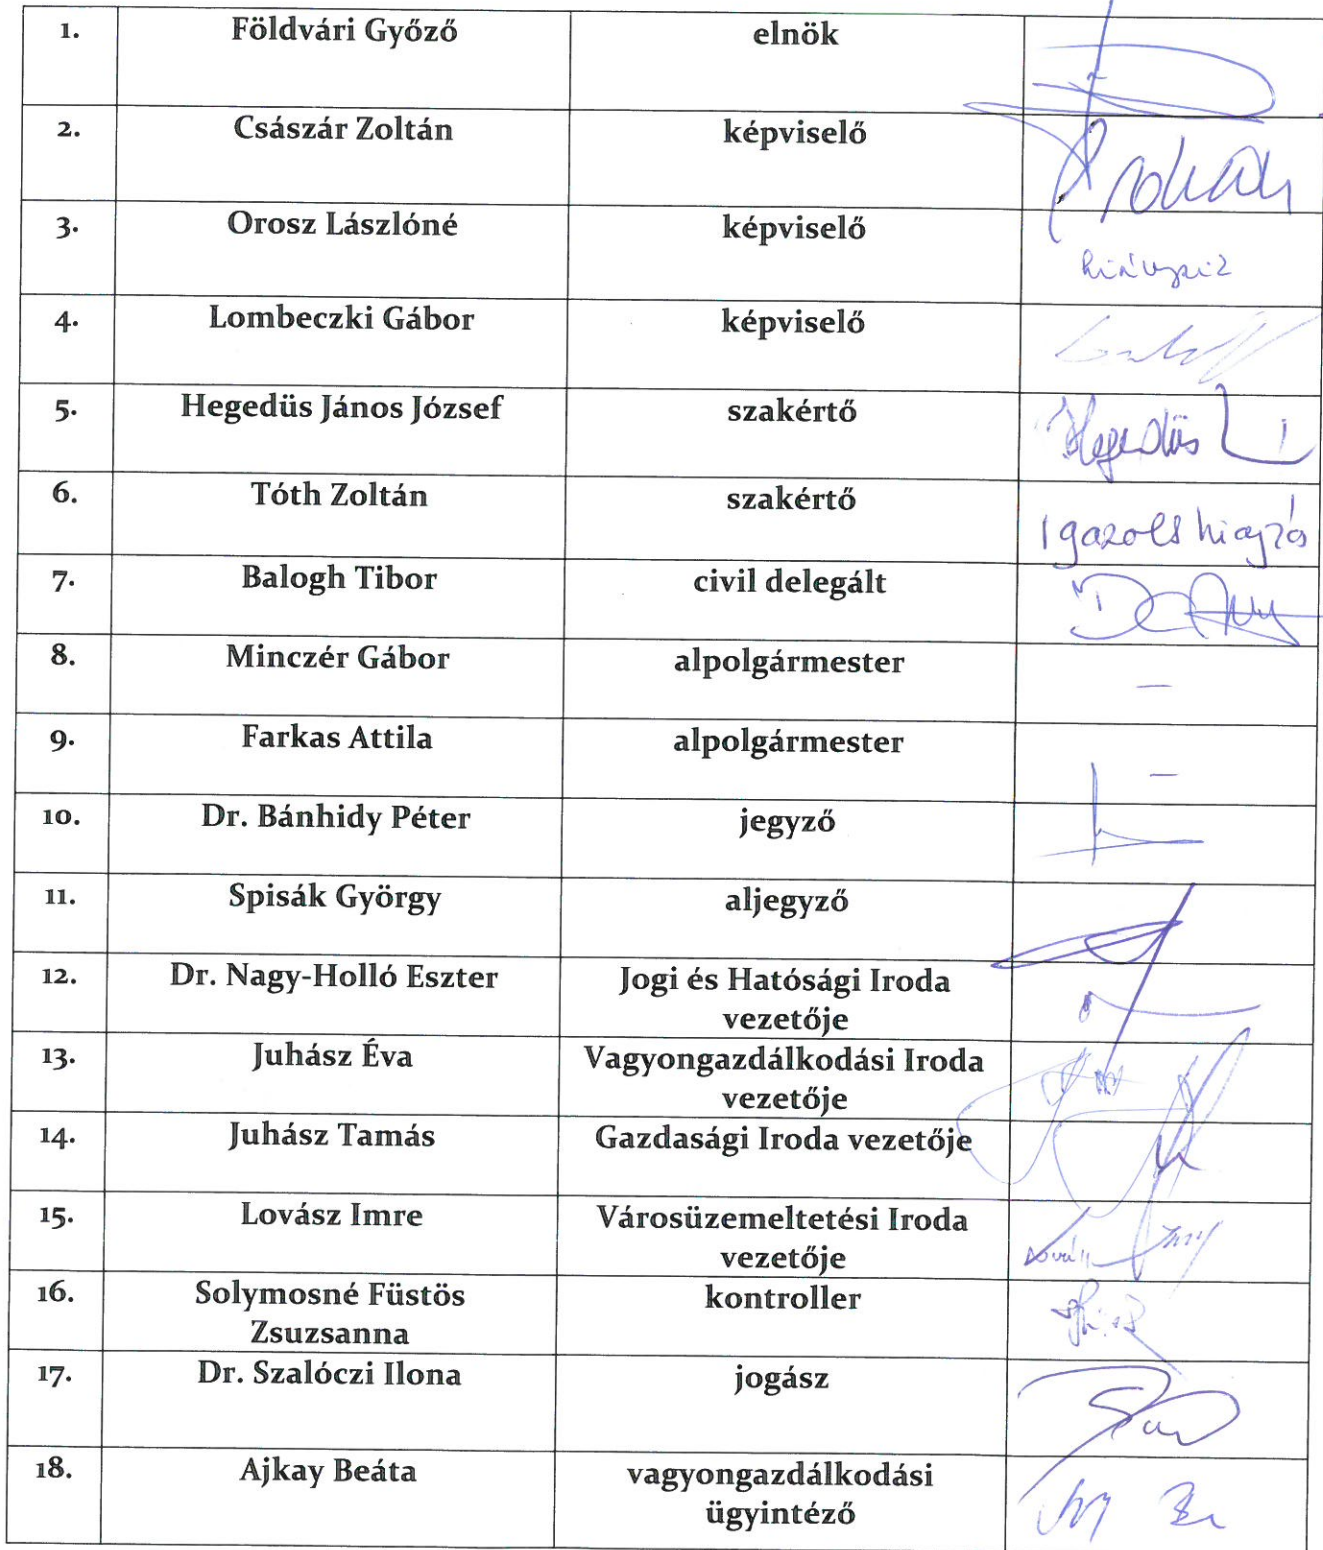 1. Földvári Győző elnök
2. Császár Zoltán képviselő
3. Orosz Lászlóné képviselő
hiányzik
4. Lombeczki Gábor képviselő
5. Hegedüs János József szakértő Hegedüs
6. Tóth Zoltán szakértő
7. Balogh Tibor civil delegált
8. Minczér Gábor alpolgármester –
9. Farkas Attila alpolgármester –
10. Dr. Bánhidy Péter jegyző
11. Spisák György aljegyző
12. Dr. Nagy-Holló Eszter Jogi és Hatósági Iroda
vezetője
13. Juhász Éva Vagyongazdálkodási Iroda
vezetője
14. Juhász Tamás Gazdasági Iroda vezetője
15. Lovász Imre Városüzemeltetési Iroda
vezetője
16. Solymosné Füstös kontroller
Zsuzsanna
17. Dr. Szalóczi Ilona jogász
18. Ajkay Beáta vagyongazdálkodási
ügyintéző